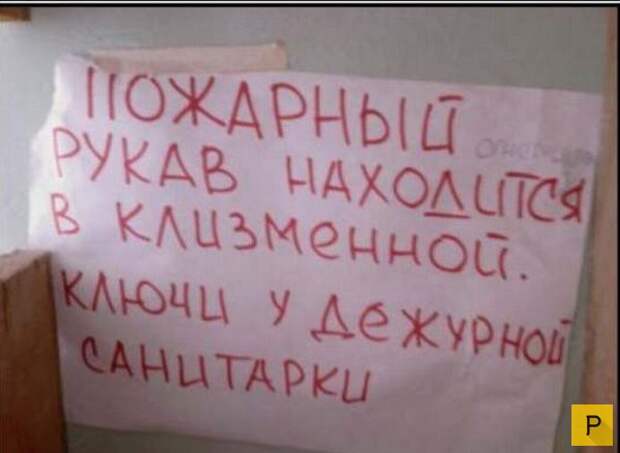 ПОЖАРНЫЙ
РУКАВ НАХОДИТСЯ
В КЛИЗМЕННОЙ.
КЛЮЧИ У ДЕЖУРНОЙ
САНИТАРКИ
P